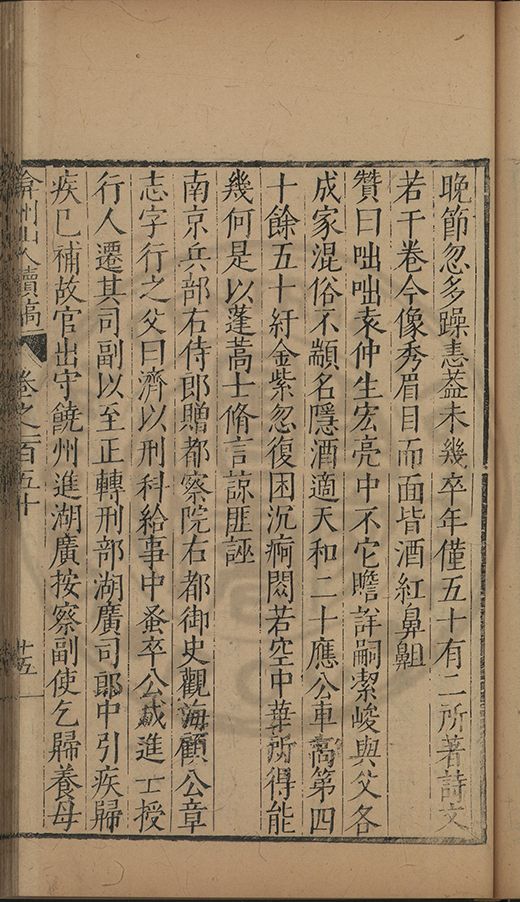 晚節忽多躁恚益未幾卒年僅五十有二所著詩文
若干卷今像秀眉目而面皆酒紅鼻齇
贊曰咄咄袁仲生宏亮中不它瞻詳嗣潔峻與父各
成家混俗不纇名隱酒適天和二十應公車高第四
十餘五十紆金紫忽復困沉痾閟若空中華所得能
幾何是以蓬蒿士脩言諒匪誣
南京兵部右侍郎贈都察院右都御史觀海顧公章
志字行之父曰濟以刑科給事中蚤卒公成進士授
行人遷其司副以至正轉刑部湖廣司郎中引疾歸
疾已補故官出守饒州進湖廣按察副使乞歸養母
弇州山人續稿 卷之一百五十 廿五